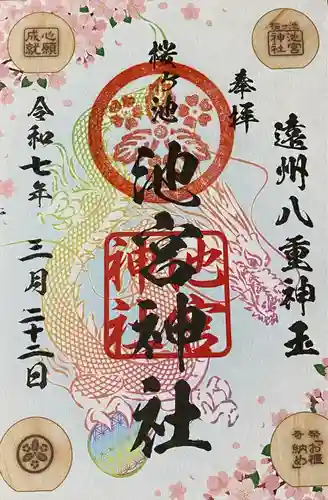 奉拝
遠州八重神玉
桜ヶ池
池宮神社
池宮
神社
令和七年
三月二十二日
心願
成就
桜ヶ池
池宮
神社
お櫃
納め